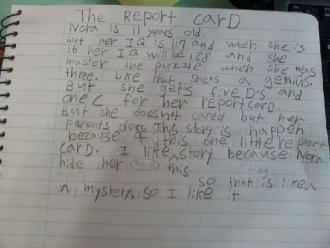 The Report Card
Nora is 11 years old.
but her IQ is 119 and when she is
16 her IQ will be 188 and she
master the puzzle when she was
three. Like that, she's a genius.
But she gets five D's and
one C for her report card.
But she doesn't cared but her
parents does. This story is happen
because of this one little report
card. I like story because Nora
hide her this
so that is like a
mystery, so I like it